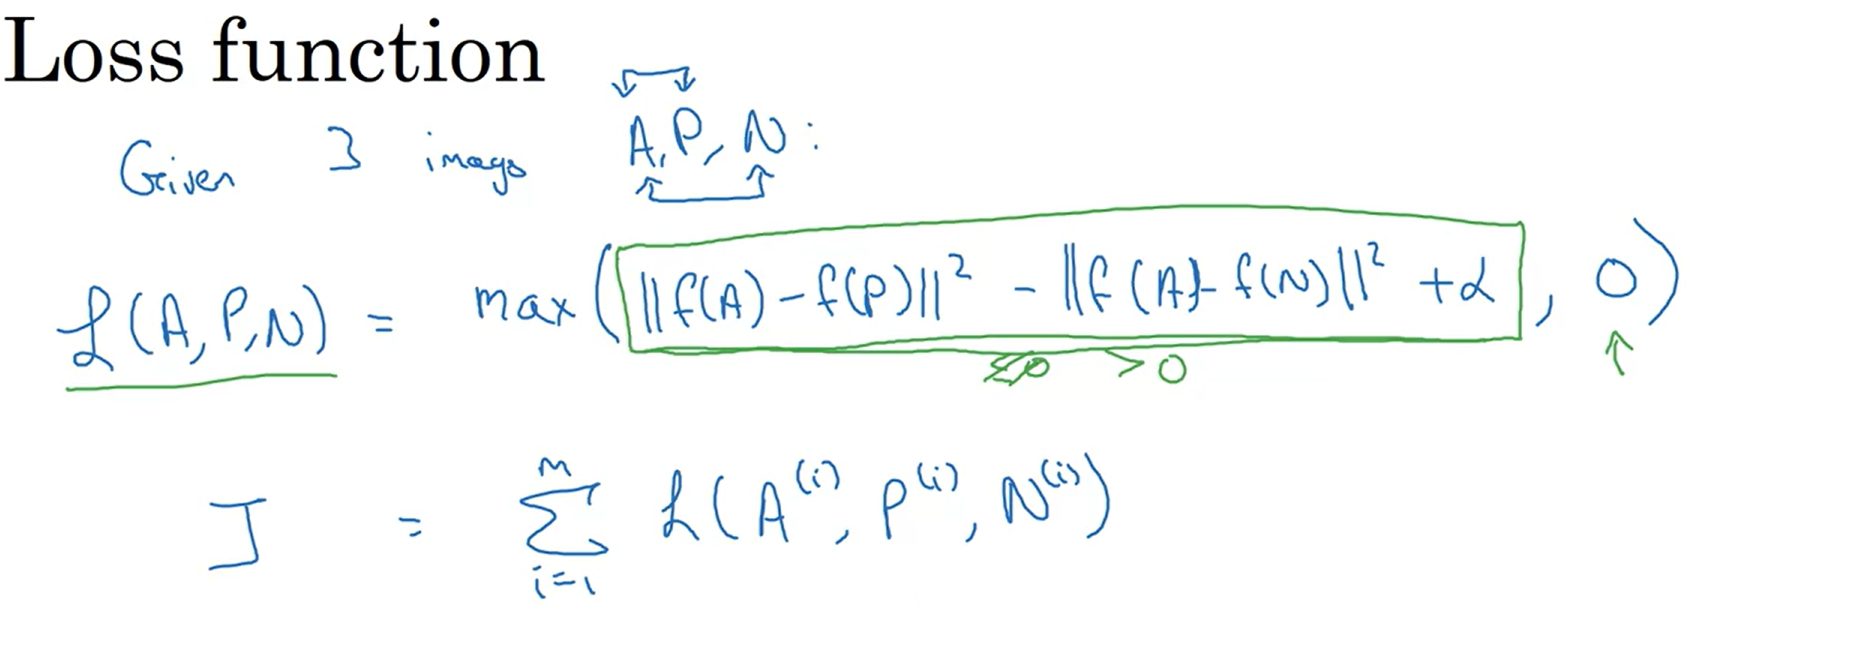 Loss function
Given 3 images A, P, N :
L(A, P, N) = max(||f(A) - f(P)||² - ||f(A) - f(N)||² + α, 0)
≤0 >0
J = Σ_{i=1}^{M} L(A^(i), P^(i), N^(i))